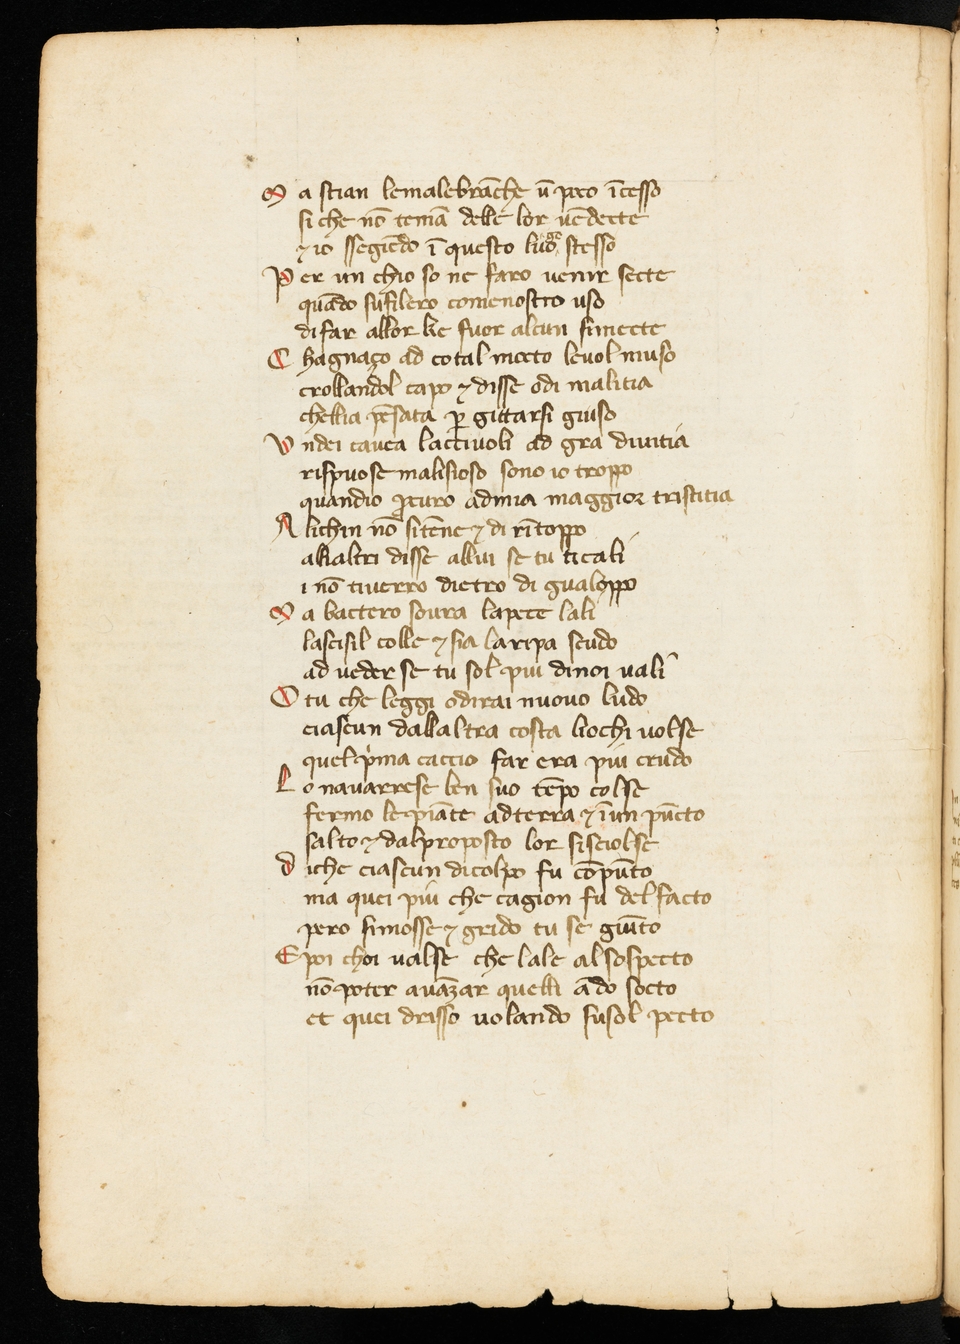 Ma stian lemalebrāche ū poco īcesso
si che nō temā delle lor uēdecte
⁊ io sseguēdo ī questo luogo stesso
Per un chio so ne faro uenir secte
quādo sufilero comenostro uso
di far allor ke fuor alcun simecte
Chagnaço ad cotal mocto leuol muso
crollandol capo ⁊ disse odi malitia
chellia pēsata ꝑ gittarsi giuso
Undei cauea lacciuoli ad gra diuitia
rispuose malisioso sono io troppo
quandio ꝓcuro admia maggior tristitia
Alichin nō sitēne ⁊ di rītoppo
allialtri disse allui se tu ticali
i nō tiuerro dietro di gualoppo
Ma bactero soura lapece lali
lascisil colle ⁊ sia laripa scudo
ad ueder se tu sol piu dinoi uali
O tu che leggi odirai nuouo ludo
ciascun dallaltra costa liochi uolse
quel pima caccio far era piu crudo
Lo nauarrese ben suo tēpo colse
fermo le piāte adterra ⁊ īun pūcto
salto ⁊ dalproposto lor sisciolse
Diche ciascun dicolpo fu cōpūto
ma quei piu che cagion fu del facto
pero simosse ⁊ grido tu se giūto
E poi choi ualse che lale al sospecto
nō poter auāzar quelli ādo socto
et quei drisso uolando susol pecto